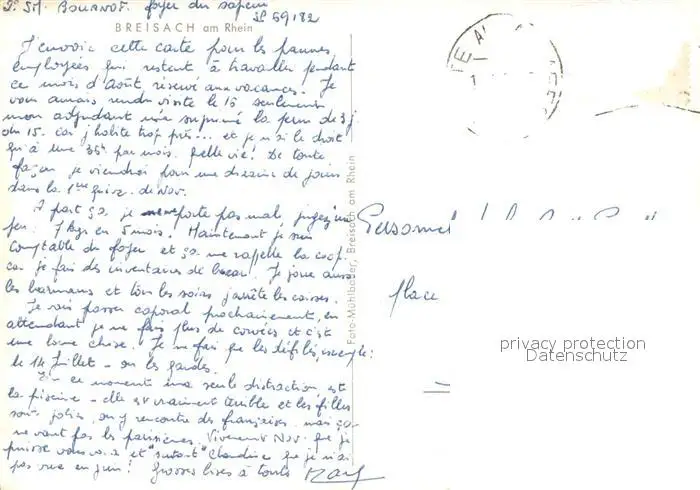 2e St. BOURNOT. foyer du sapeur
SP 59182
BREISACH am Rhein
J'envoie cette carte pour les pauvres
employées qui restent à travailler pendant
ce mois d'Août, réservé aux vacances. Je
vous aurais rendu visite le 15 seulement
mon adjudant m'a supprimé la perm de 3j
du 15. car j'habite trop près... et je n'ai le droit
qu'à une 36h par mois. Belle vie! De toute
façon je viendrai pour une dizaine de jours
dans la 1ère quinz. de Nov.
A part ça je me porte pas mal jugez un
peu: 7 kgs en 5 mois. Maintenant je suis
comptable du foyer et ça me rappelle la coop.
car je fais des inventaires de Je joue aussi
les barmans et tous les soirs j'arrête les caisses.
Je vais passer caporal prochainement, en
attendant je ne fais plus de corvées et c'est
une bonne chose. Je ne fais que les défilés, exemple:
le 14 Juillet - ou les gardes.
En ce moment ma seule distraction est
la piscine - elle est vraiment terrible et les filles
sont jolies, on y rencontre des françaises mais ça
ne vaut pas les parisiennes. Vivement Nov. que je
puisse vous voir et "surtout" Claudine que je n'ai
pas vue en juin! Grosses bises à toutes
Foto-Mühlbauer, Breisach am Rhein
Personnel
place
privacy protection
Datenschutz